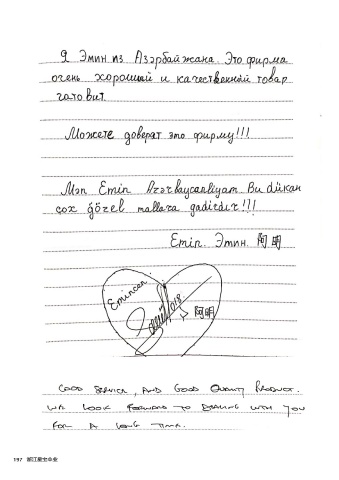 Я Эмин из Азәрбайжана. Это фирма
очень хороший и качественный товар
готовит.
Можете доверят это фирму!!!
Mən Emin Azərbaycanlıyam. Bu dükan
çox gözel mallara qadirdir!!!
Emin. Эмин. 阿明
Emincan
2018
阿明
GOOD SERVICE, AND GOOD QUALITY PRODUCT.
WE LOOK FORWARD TO DEALING WITH YOU
FOR A LONG TIME.
197 浙江星宝伞业